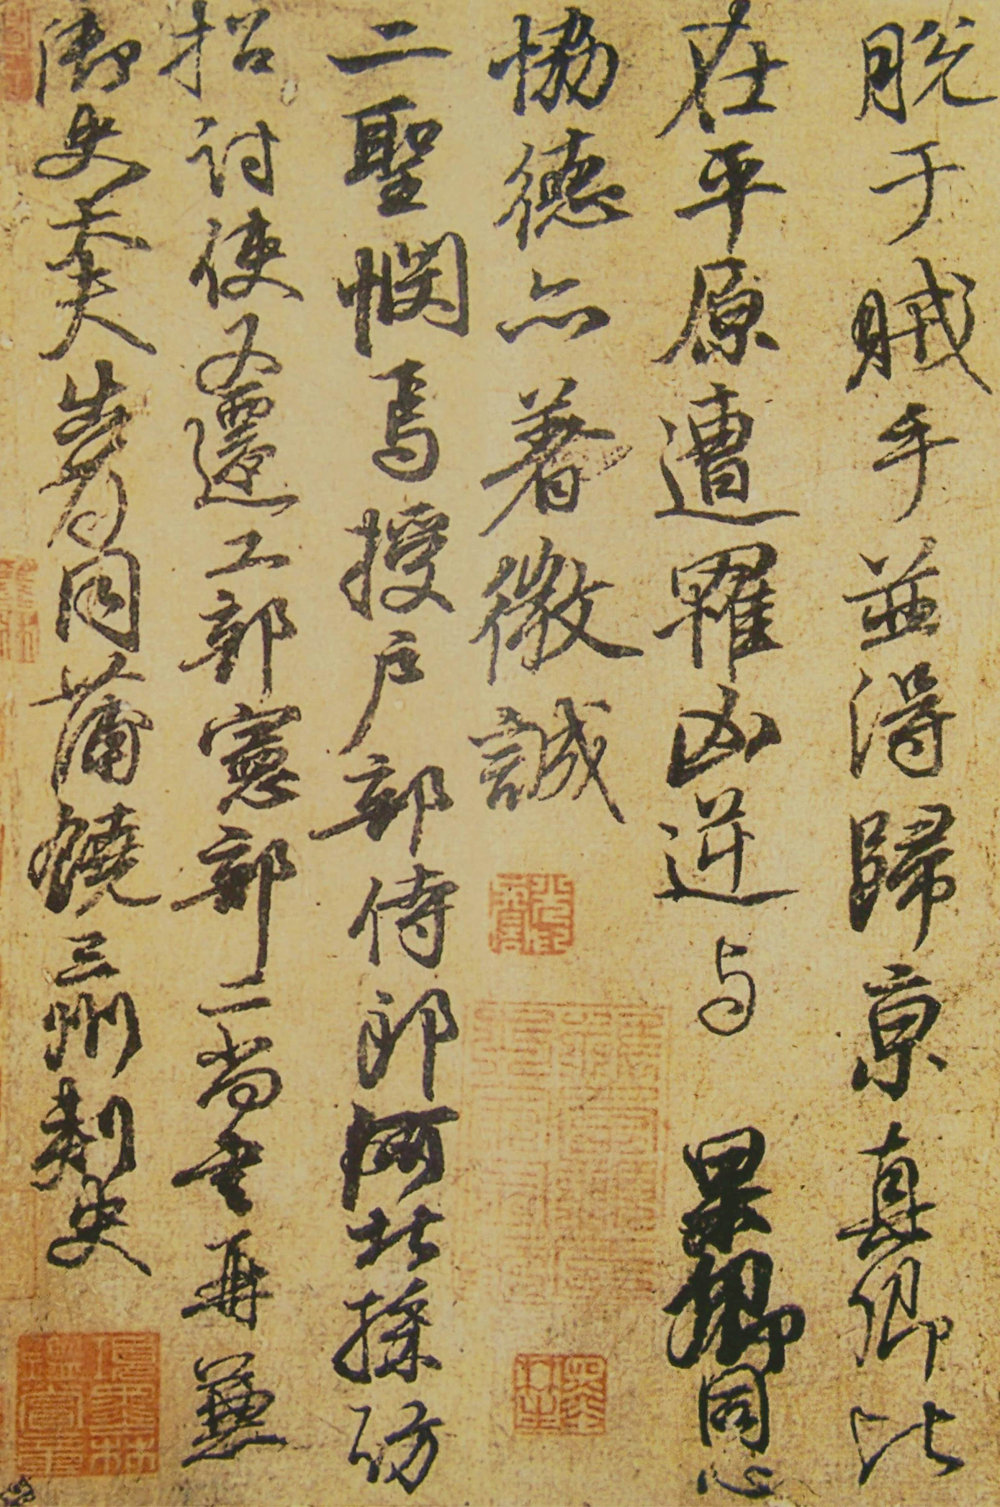 脫于賊手並得歸京真卿比
在平原遭罹凶逆与杲卿同心
協德亦著微誠
二聖憫焉授户部侍郎河北採訪
招討使又遷工部憲部二尚書再兼
御史大夫出為同蒲饒三州刺史